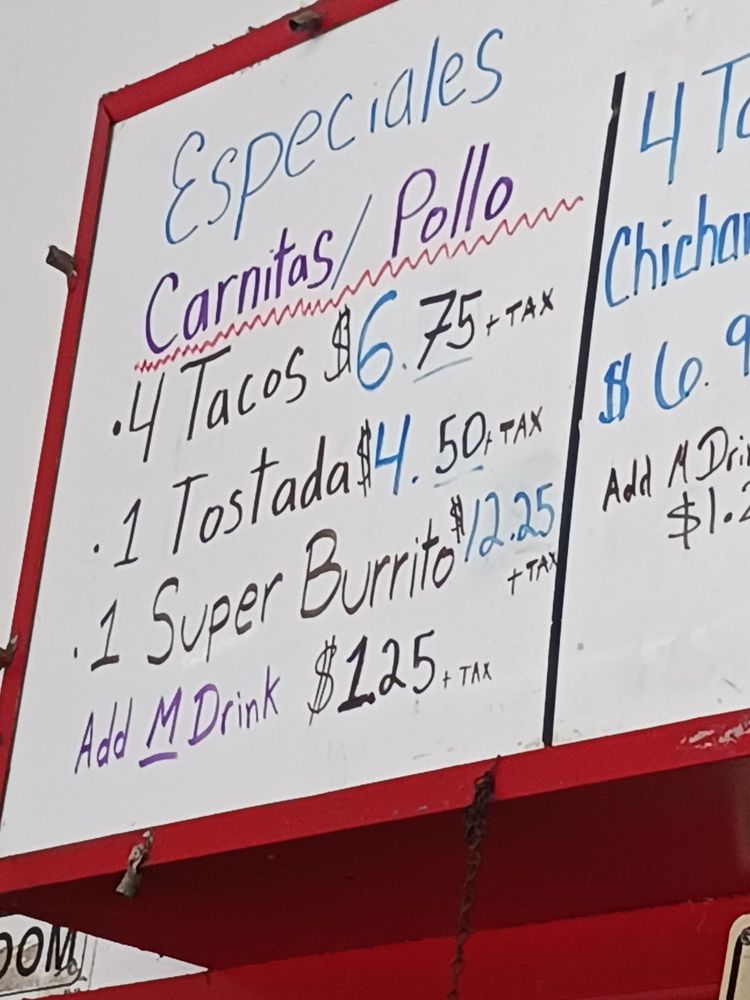 Especiales
Carnitas/Pollo
·4 Tacos $6.75 + TAX
·1 Tostada $4.50 + TAX
·1 Super Burrito $12.25
+ TAX
Add M Drink $1.25 + TAX
4
$6.9
Add M
$1.2